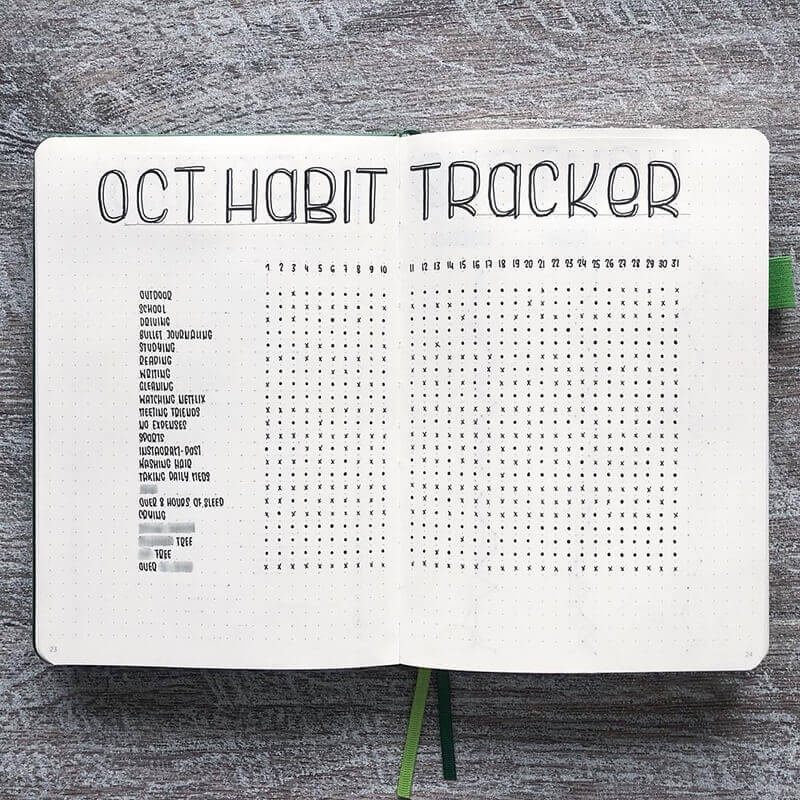 OCT HABIT TRACKER
1 2 3 4 5 6 7 8 9 10 11 12 13 14 15 16 17 18 19 20 21 22 23 24 25 26 27 28 29 30 31
OUTDOOR
SCHOOL
DRIVING
BULLET JOURNALING
STUDYING
READING
WRITING
CLEANING
WATCHING NETFLIX
MEETING FRIENDS
NO EXPENSES
SPORTS
INSTAGRAM-POST
WASHING HAIR
TAKING DAILY MEDS
OVER 8 HOURS OF SLEEP
CRYING
FREE
FREE
OVER
23
24